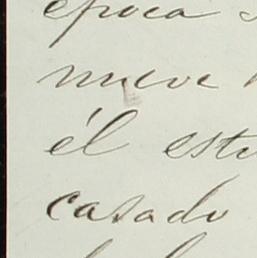 época
nueve
él est
casado